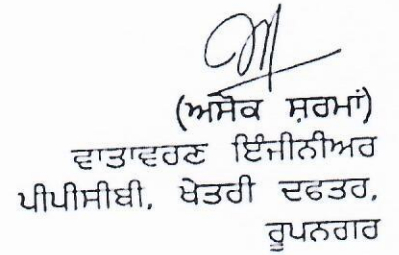 (ਅਸੋਕ ਸ਼ਰਮਾਂ)
ਵਾਤਾਵਰਣ ਇੰਜੀਨੀਅਰ
ਪੀਪੀਸੀਬੀ, ਖੇਤਰੀ ਦਫਤਰ,
ਰੂਪਨਗਰ